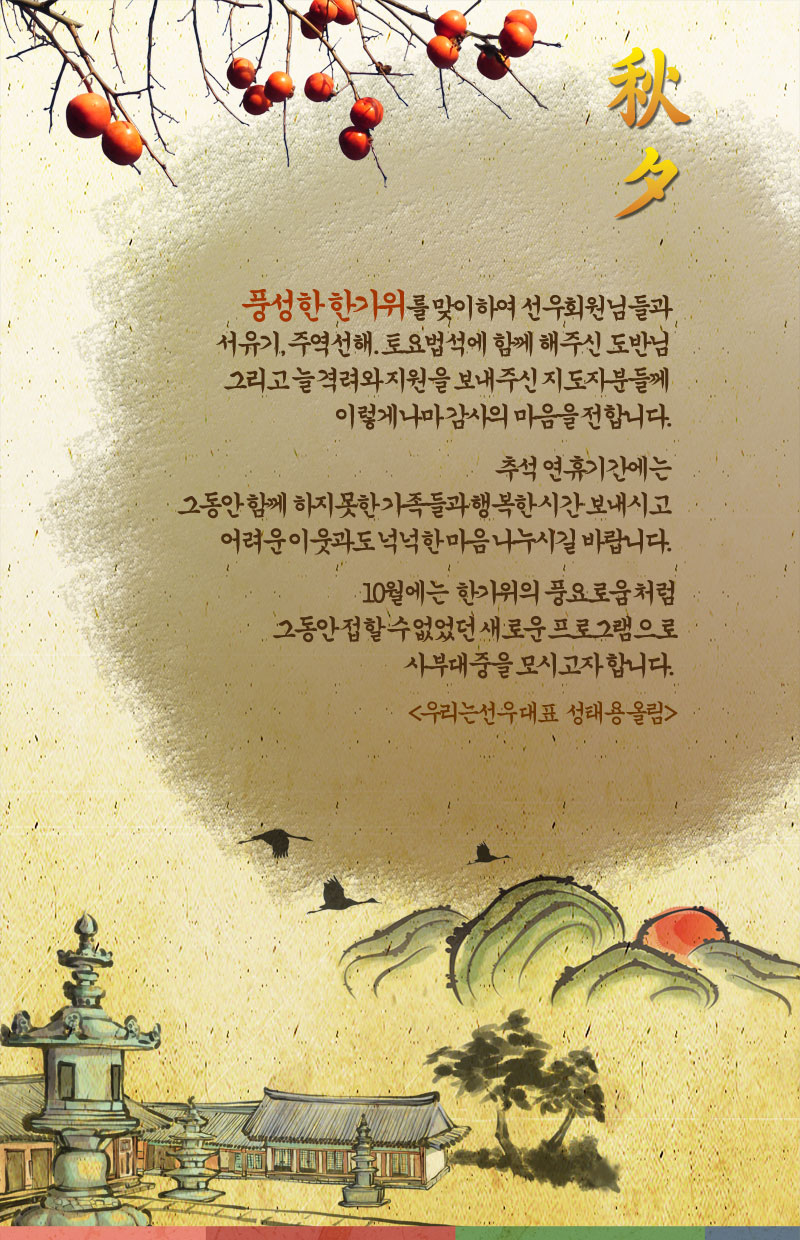 秋夕
풍성한 한가위를 맞이하여 선우회원님들과
서유기, 주역선해. 토요법석에 함께 해주신 도반님
그리고 늘 격려와 지원을 보내주신 지도자분들께
이렇게나마 감사의 마음을 전합니다.
추석 연휴기간에는
그동안 함께 하지 못한 가족들과 행복한 시간 보내시고
어려운 이웃과도 넉넉한 마음 나누시길 바랍니다.
10월에는 한가위의 풍요로움처럼
그동안 접할 수 없었던 새로운 프로그램으로
사부대중을 모시고자 합니다.
<우리는선우 대표 성태용 올림>